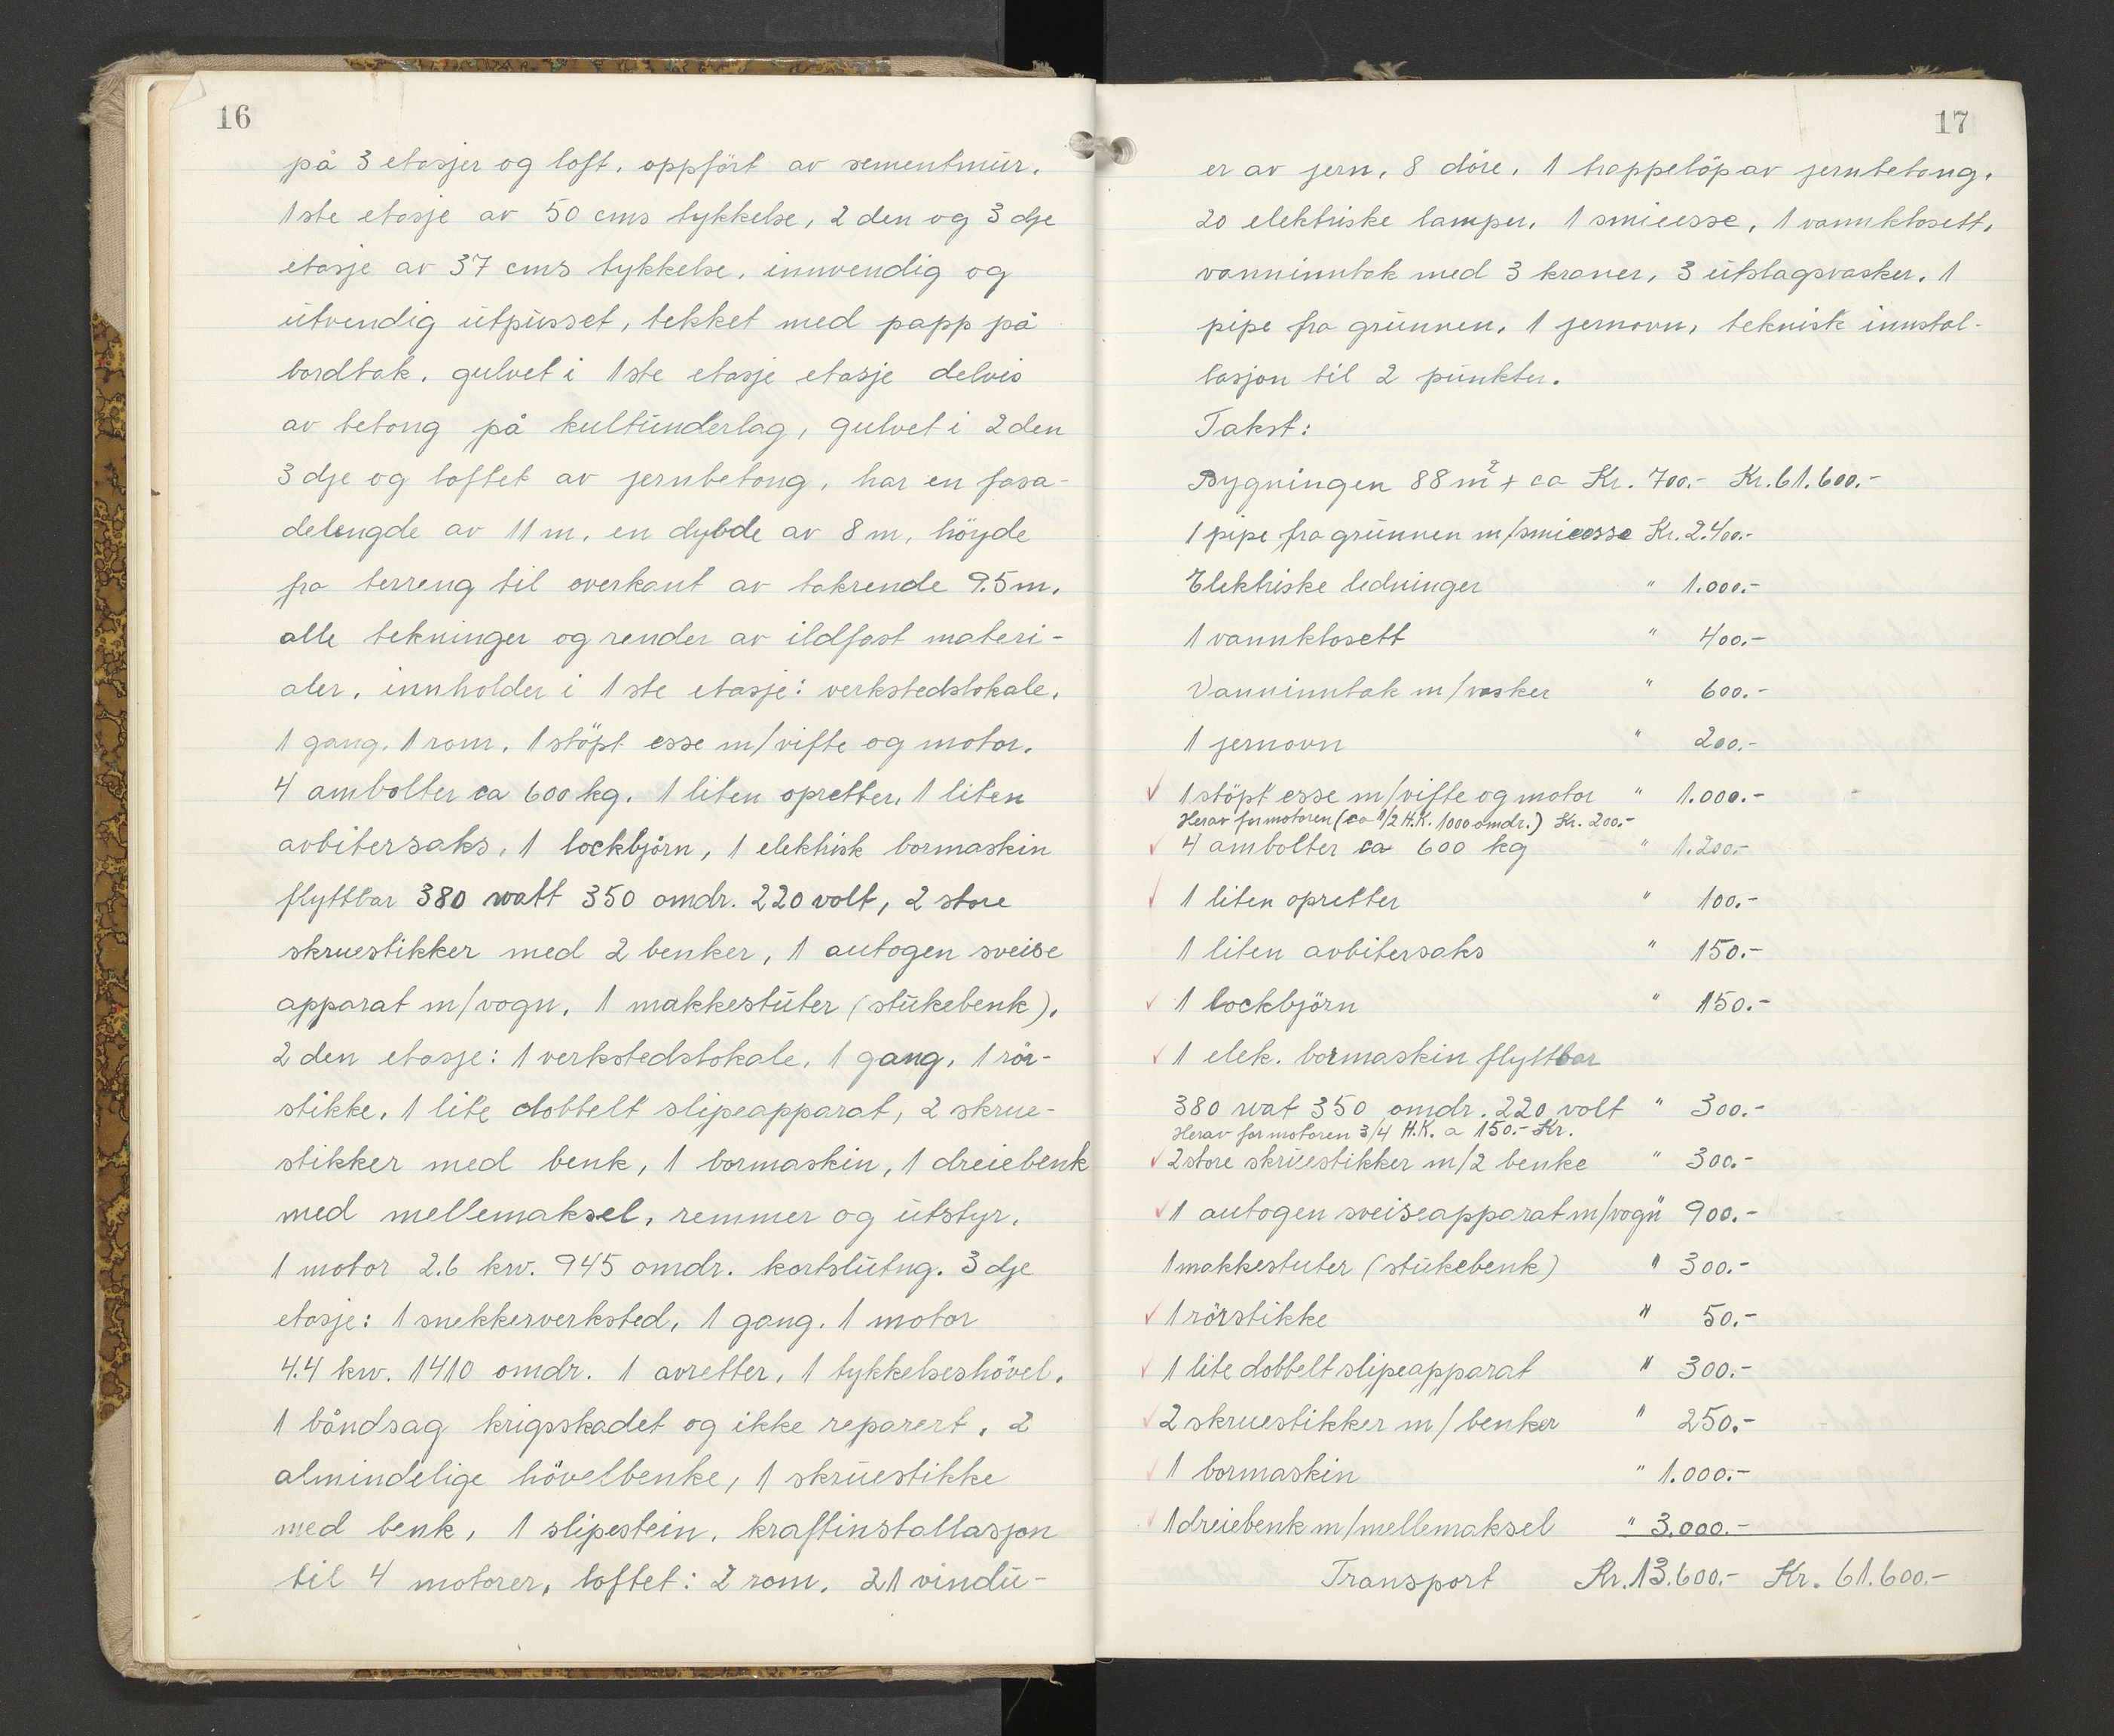 16
på 3 etasjer og loft, oppfört av sementmur,
1ste etasje av 50 cms tykkelse, 2den og 3dje
etasje av 37 cms tykkelse, innvendig og
utvendig utpusset, tekket med papp på
bordtak, gulvet i 1ste etasje etasje delvis
av betong på kultunderlag, gulvet i 2den
3dje og loftet av jernbetong, har en fasa-
delengde av 11 m, en dybde av 8 m, höyde
fra terreng til overkant av takrende 9.5 m,
alle tekninger og render av ildfast materi-
aler, innholder i 1ste etasje: verkstedslokale,
1 gang, 1 rom, 1 stöpt esse m/vifte og motor,
4 ambolter ca 600 kg, 1 liten opretter, 1 liten
avbitersaks, 1 lockbjörn, 1 elektrisk bormaskin
flyttbar 380 watt 350 omdr. 220 volt, 2 store
skruestikker med 2 benker, 1 autogen sveise
apparat m/vogn, 1 makkestuter (stukebenk),
2den etasje: 1 verkstedslokale, 1 gang, 1 rör-
stikke, 1 lite dobbelt slipeapparat, 2 skrue-
stikker med benk, 1 bormaskin, 1 dreiebenk
med mellemaksel, remmer og utstyr,
1 motor 2.6 kw. 945 omdr. kortslutng. 3dje
etasje: 1 snekkerverksted, 1 gang, 1 motor
4.4 kw. 1410 omdr. 1 avretter, 1 tykkelseshövel,
1 båndsag krigsskadet og ikke reparert, 2
almindelige hövelbenke, 1 skruestikke
med benk, 1 slipestein, kraftinstallasjon
til 4 motorer, loftet: 2 rom, 21 vindu-
17
er av jern, 8 döre, 1 trappelöp av jernbetong,
20 elektriske lamper, 1 smiesse, 1 vannklosett,
vanninntak med 3 kraner, 3 utslagsvasker, 1
pipe fra grunnen, 1 jernovn, teknisk innstal-
lasjon til 2 punkter.
Takst:
Bygningen 88 m² + ca Kr. 700.- Kr. 61.600.-
1 pipe fra grunnen m/smiesse Kr. 2.400.-
Elektriske ledninger " 1.000.-
1 vannklosett " 400.-
Vanninntak m/vasker " 600.-
1 jernovn " 200.-
✓ 1 stöpt esse m/vifte og motor " 1.000.-
Herav for motoren (ca 1/2 H.K. 1000 omdr.) Kr. 200.-
✓ 4 ambolter ca 600 kg " 1.200.-
✓ 1 liten opretter " 100.-
1 liten avbitersaks " 150.-
✓ 1 lockbjörn " 150.-
✓ 1 elek. bormaskin flyttbar
380 wat 350 omdr. 220 volt " 300.-
Herav for motoren 3/4 H.K. a 150.- Kr.
✓ 2 store skruestikker m/2 benke " 300.-
✓ 1 autogen sveiseapparat m/vogn " 900.-
1 makkestuter (stukebenk) " 300.-
✓ 1 rörstikke " 50.-
✓ 1 lite dobbelt slipeapparat " 300.-
✓ 2 skruestikker m/benker " 250.-
✓ 1 bormaskin " 1.000.-
✓ 1 dreiebenk m/mellemaksel " 3.000.-
Transport Kr. 13.600.- Kr. 61.600.-